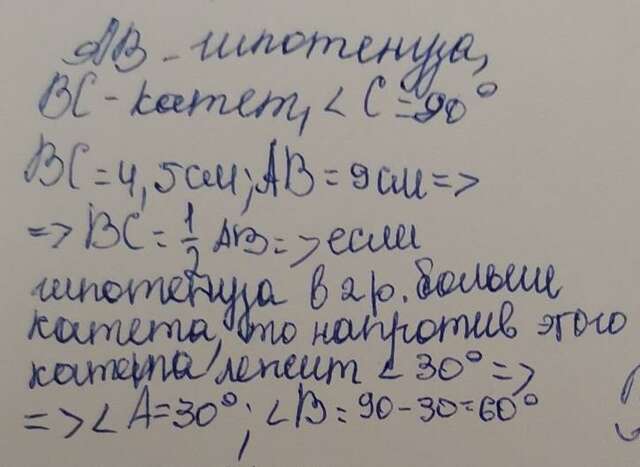 AB - гипотенуза,
BC - катет, ∠ C = 90°
BC = 4,5 см; AB = 9 см =>
=> BC = 1/2 AB => если
гипотенуза в 2 р. больше
катета, то напротив этого
катета лежит ∠ 30° =>
=> ∠ A = 30°; ∠ B = 90 - 30 = 60°